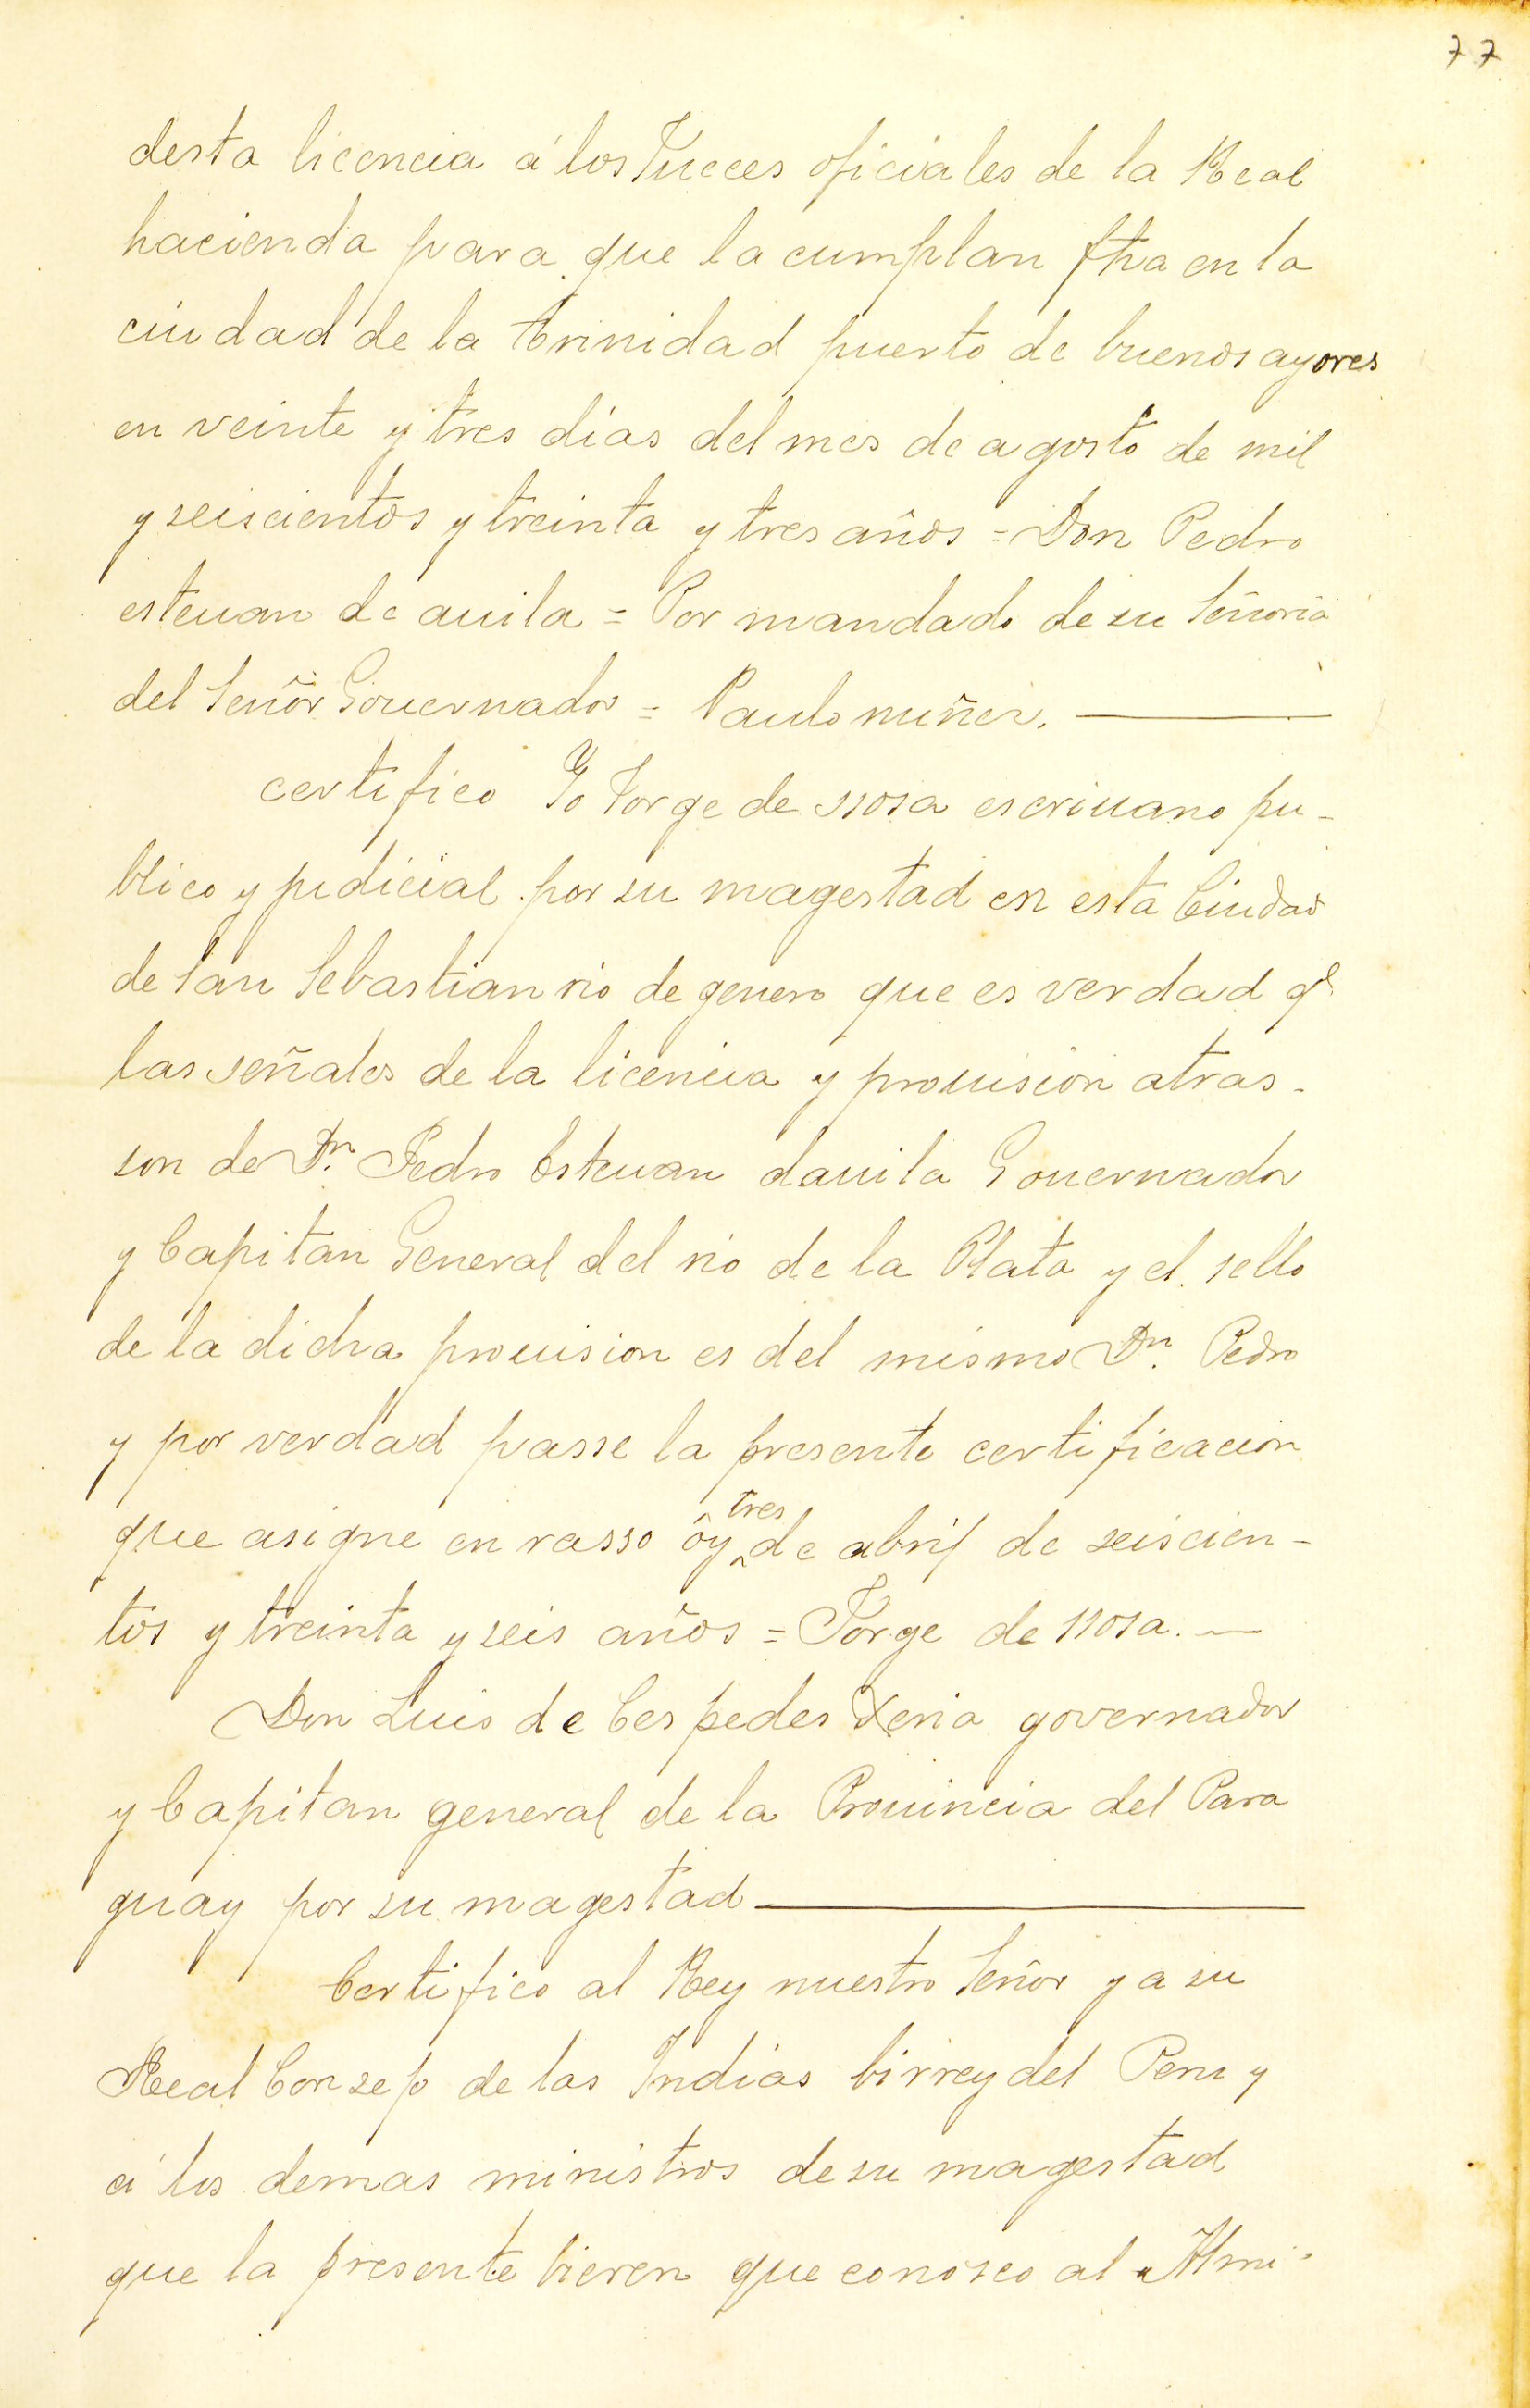 77
desta licencia á los Jueces oficiales de la Real
hacienda para que la cumplan fha en la
ciudad de la trinidad puerto de buenos ayores
en veinte y tres dias del mes de agosto de mil
y seiscientos y treinta y tres años = Don Pedro
esteuan de auila = Por mandado de su Señoria
del Señor Gouernador = Paulo nuñez.
certifico Yo Jorge de ssosa escriuano pu-
blico y judicial por su magestad en esta Ciudad
de San Sebastian rio de genero que es verdad q̃
las señales de la licencia y prouision atras-
son de Dn. Pedro Esteuan dauila Gouernador
y Capitan General del rio de la Plata y el sello
de la dicha prouision es del mismo Dn. Pedro
y por verdad passe la presente certificacion
que asigne en rasso ôy tres de abril de seiscien-
tos y treinta y seis años = Jorge de ssosa.
Don Luis de Cespedes Xeria governador
y Capitan general de la Prouincia del Para
guay por su magestad
Certifico al Rey nuestro Señor y a su
Real Consejo de las Indias birrey del Peru y
á los demas ministros de su magestad
que la presente bieren que conosco al Almi-